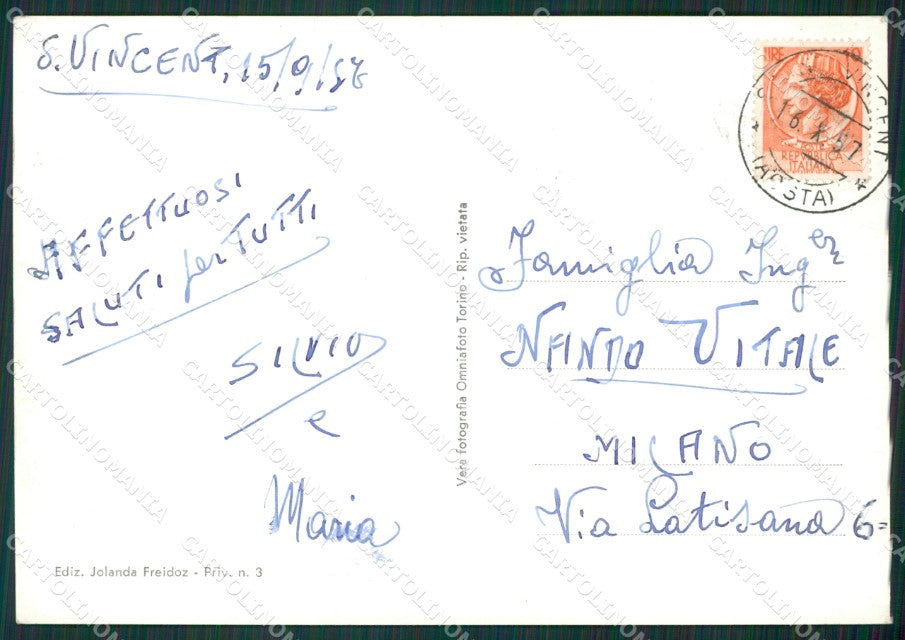 S. VINCENT, 15/9/57
AFFETTUOSI
SALUTI per TUTTI
SILVIO
e
Maria
Ediz. Jolanda Freidoz - Priv. n. 3
Vera fotografia Omniafoto Torino - Rip. vietata
LIRE 10
POSTE
REPUBBLICA
ITALIANA
S. VINCENT
16.X.57
(AOSTA)
Famiglia Ing er
NANDO VITALE
MILANO
Via Latisana 6=
CARTOLINOMANIA